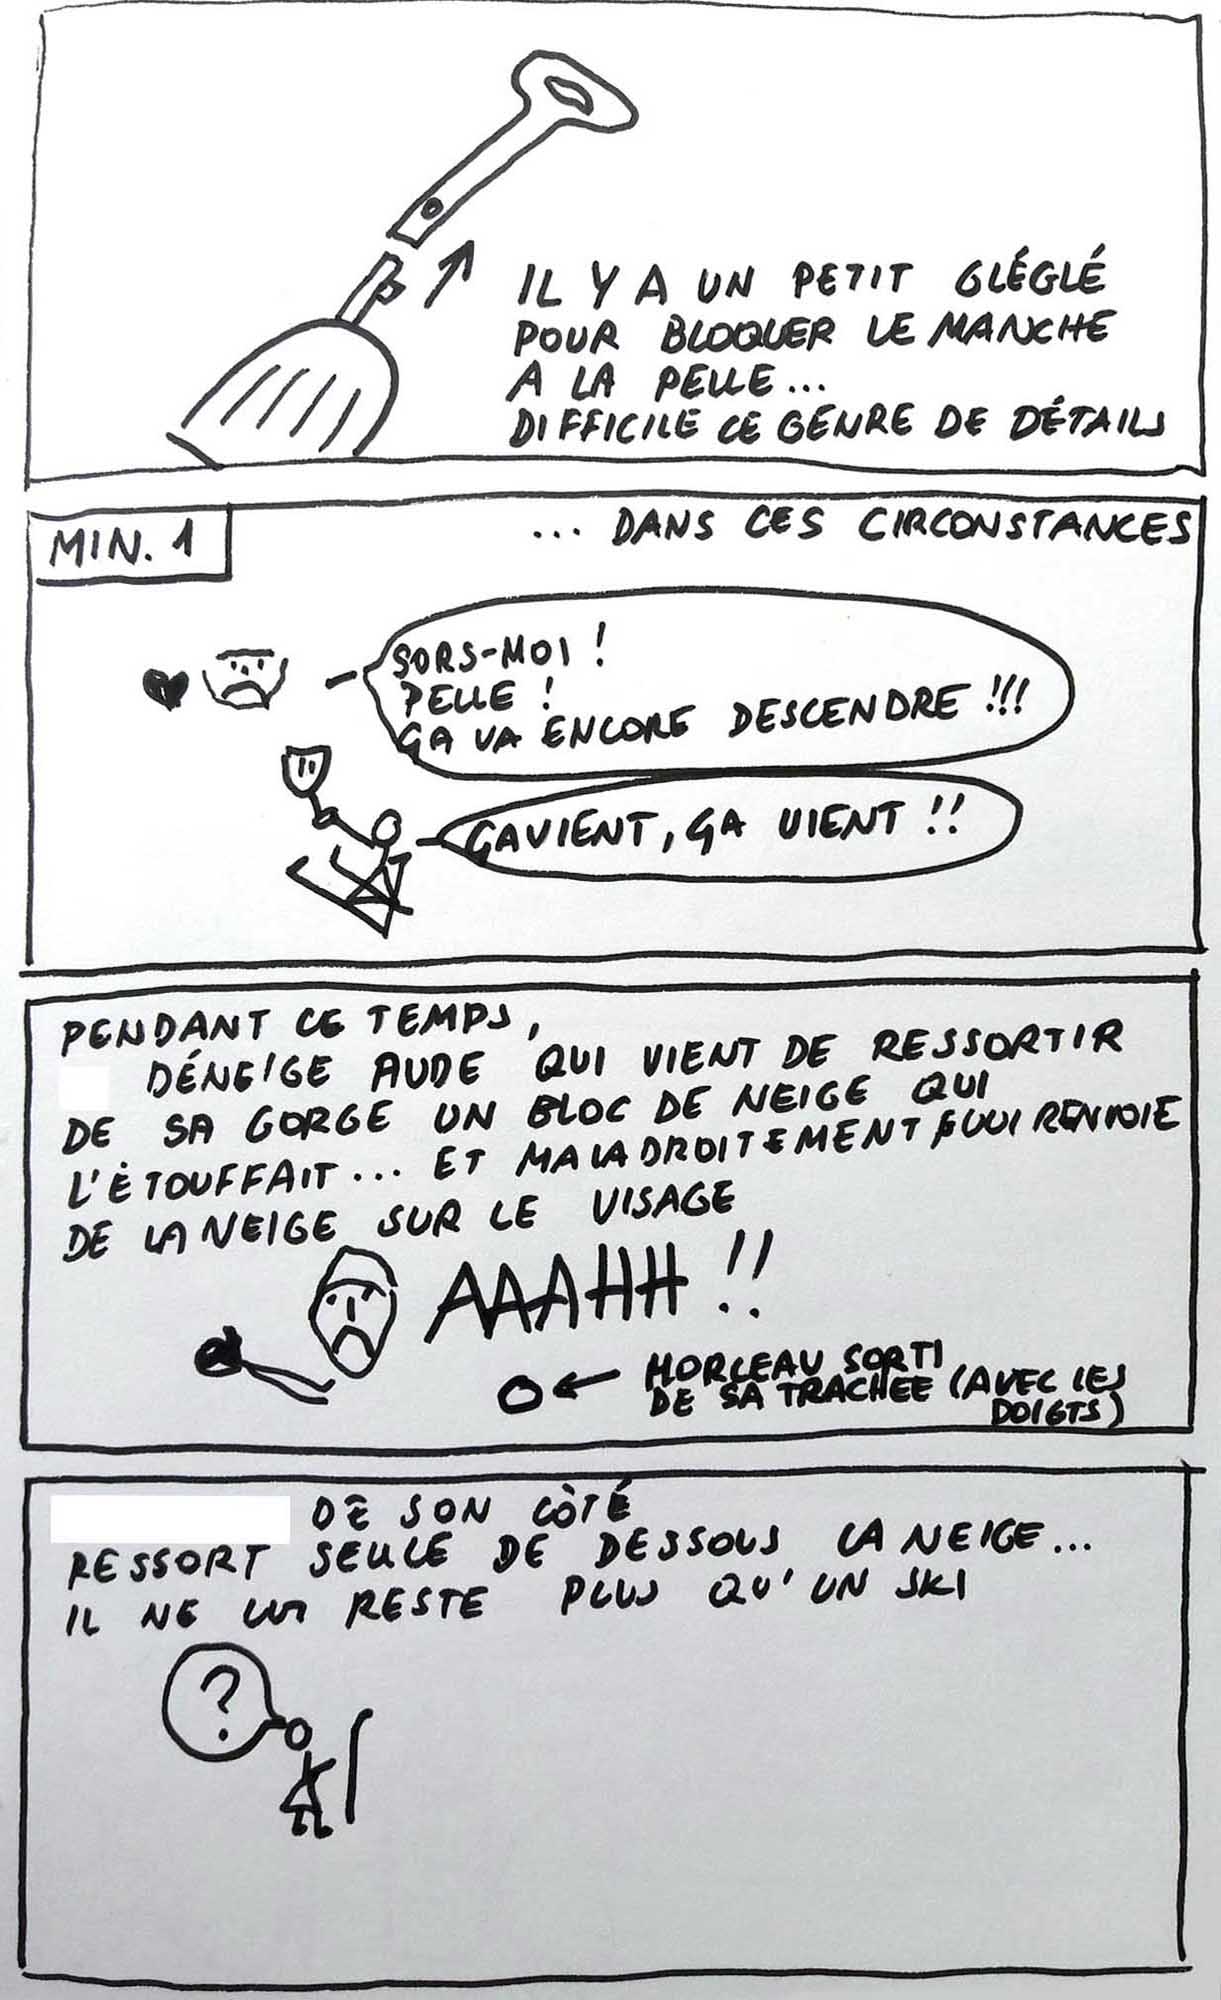 IL Y A UN PETIT GLÉGLÉ
POUR BLOQUER LE MANCHE
A LA PELLE...
DIFFICILE CE GENRE DE DÉTAILS
MIN. 1
... DANS CES CIRCONSTANCES
SORS-MOI !
PELLE !
ÇA VA ENCORE DESCENDRE !!!
ÇA VIENT, ÇA VIENT !!
PENDANT CE TEMPS,
DÉNEIGE AUDE QUI VIENT DE RESSORTIR
DE SA GORGE UN BLOC DE NEIGE QUI
L'ÉTOUFFAIT... ET MALADROITEMENT LUI RENVOIE
DE LA NEIGE SUR LE VISAGE
AAAHH !!
MORCEAU SORTI
DE SA TRACHEE (AVEC LES
DOIGTS)
DE SON CÒTÉ
RESSORT SEULE DE DESSOUS LA NEIGE...
IL NE LUI RESTE PLUS QU'UN SKI
?